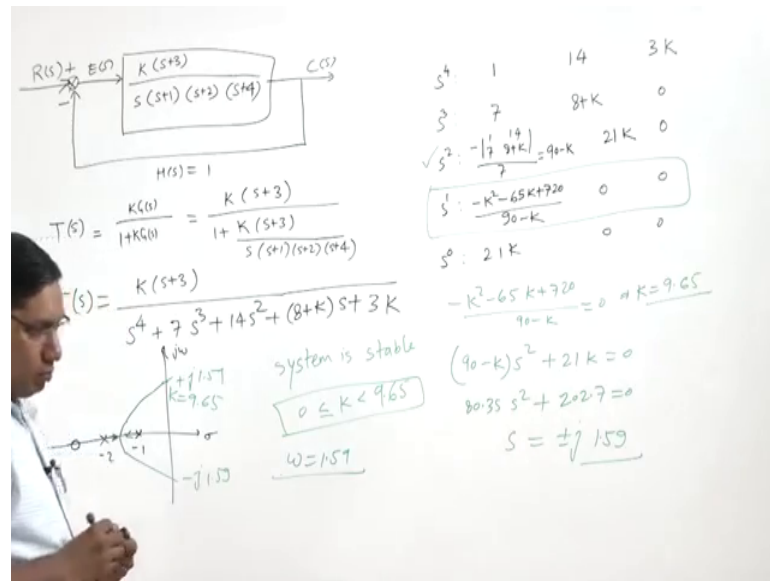 R(s) + E(s) K(s+3) C(s)
s(s+1)(s+2)(s+4)
-
H(s) = 1
T(s) = KG(s) / 1+KG(s) = K(s+3) / 1 + K(s+3) / s(s+1)(s+2)(s+4)
(s) = K(s+3) / s⁴ + 7s³ + 14s² + (8+K)s + 3K
jω
+j1.59
K=9.65
σ
-2 -1
-j1.59
system is stable
0 ≤ K < 9.65
ω = 1.59
s⁴: 1 14 3K
s³: 7 8+K 0
✓ s²: -|1 14 / 7 8+K| / 7 = 90-K 21K 0
s¹: -K²-65K+720 / 90-K 0 0
s⁰: 21K 0 0
-K²-65K+720 / 90-K = 0 ⇒ K = 9.65
(90-K)s² + 21K = 0
80.35 s² + 202.7 = 0
s = ±j 1.59